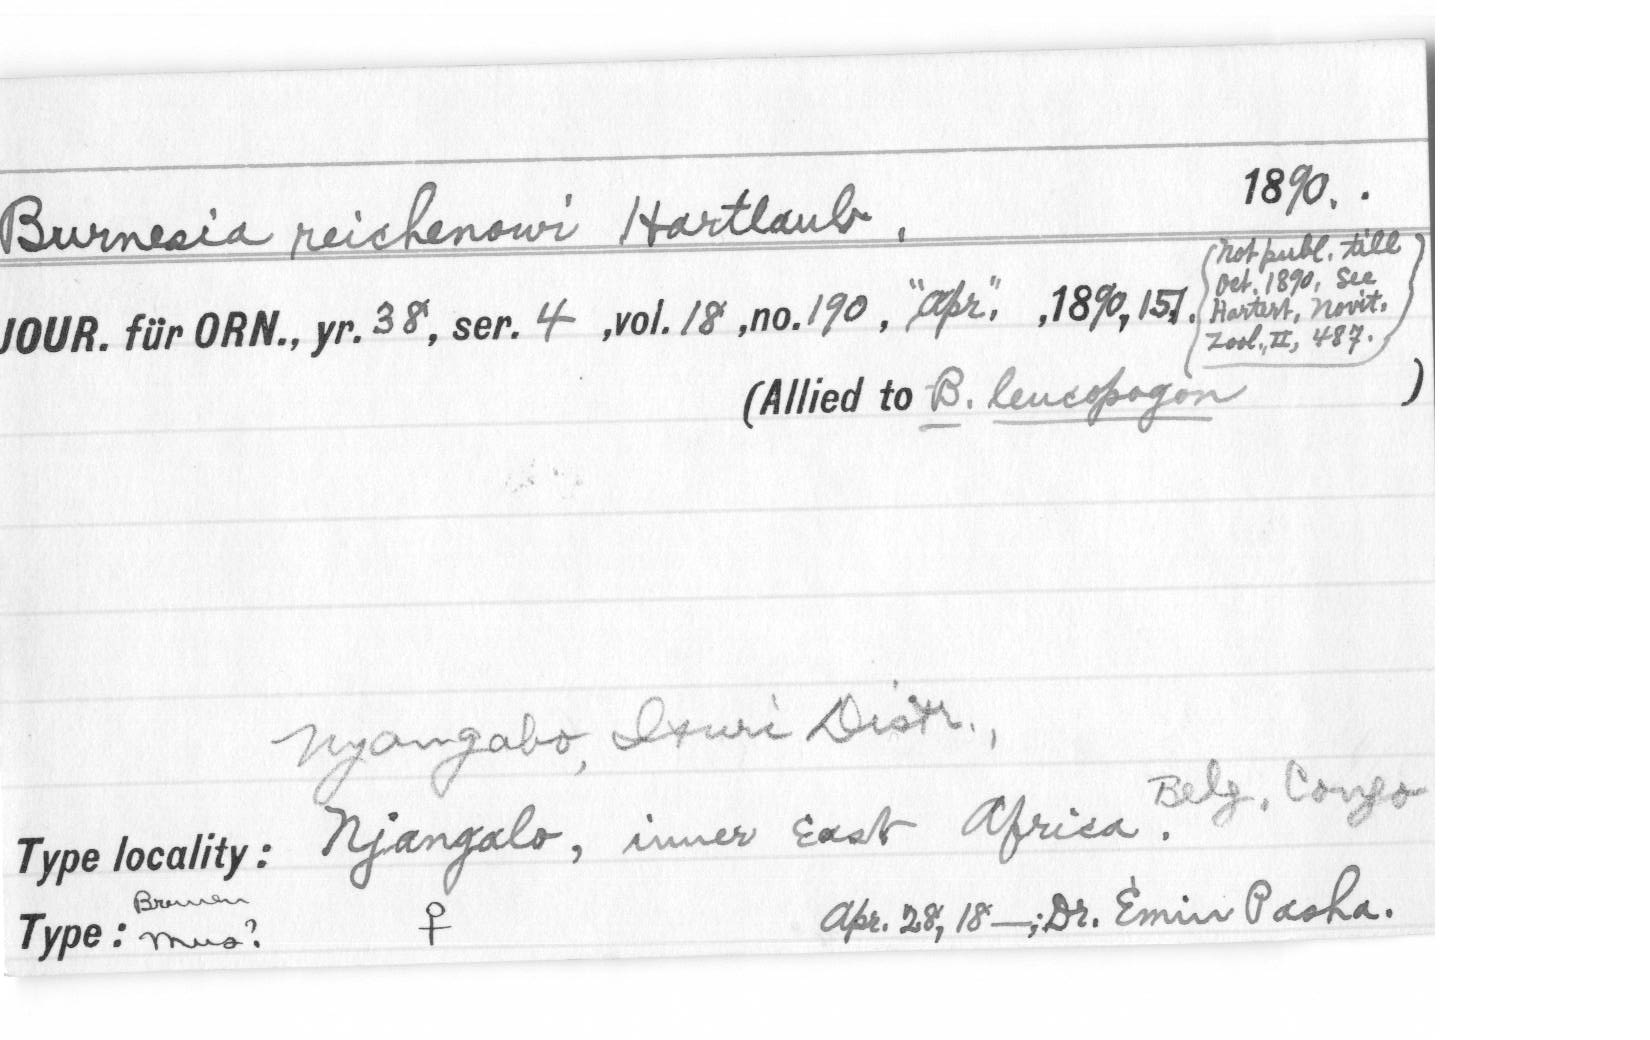 1890. .
Burnesia reichenowi Hartlaub,
JOUR. für ORN., yr. 38, ser. 4 ,vol. 18 ,no. 190 , "Apr.", ,1890, 151.
(Not publ. till
Oct. 1890, See
Hartert, Novit.
Zool., II, 487.)
(Allied to B. leucopogon )
Nyangabo, Ituri Distr.,
Belg. Congo
Type locality: Njangalo, inner East Africa.
Bremen
Type: Mus? ♀ Apr. 28, 18—; Dr. Emin Pasha.